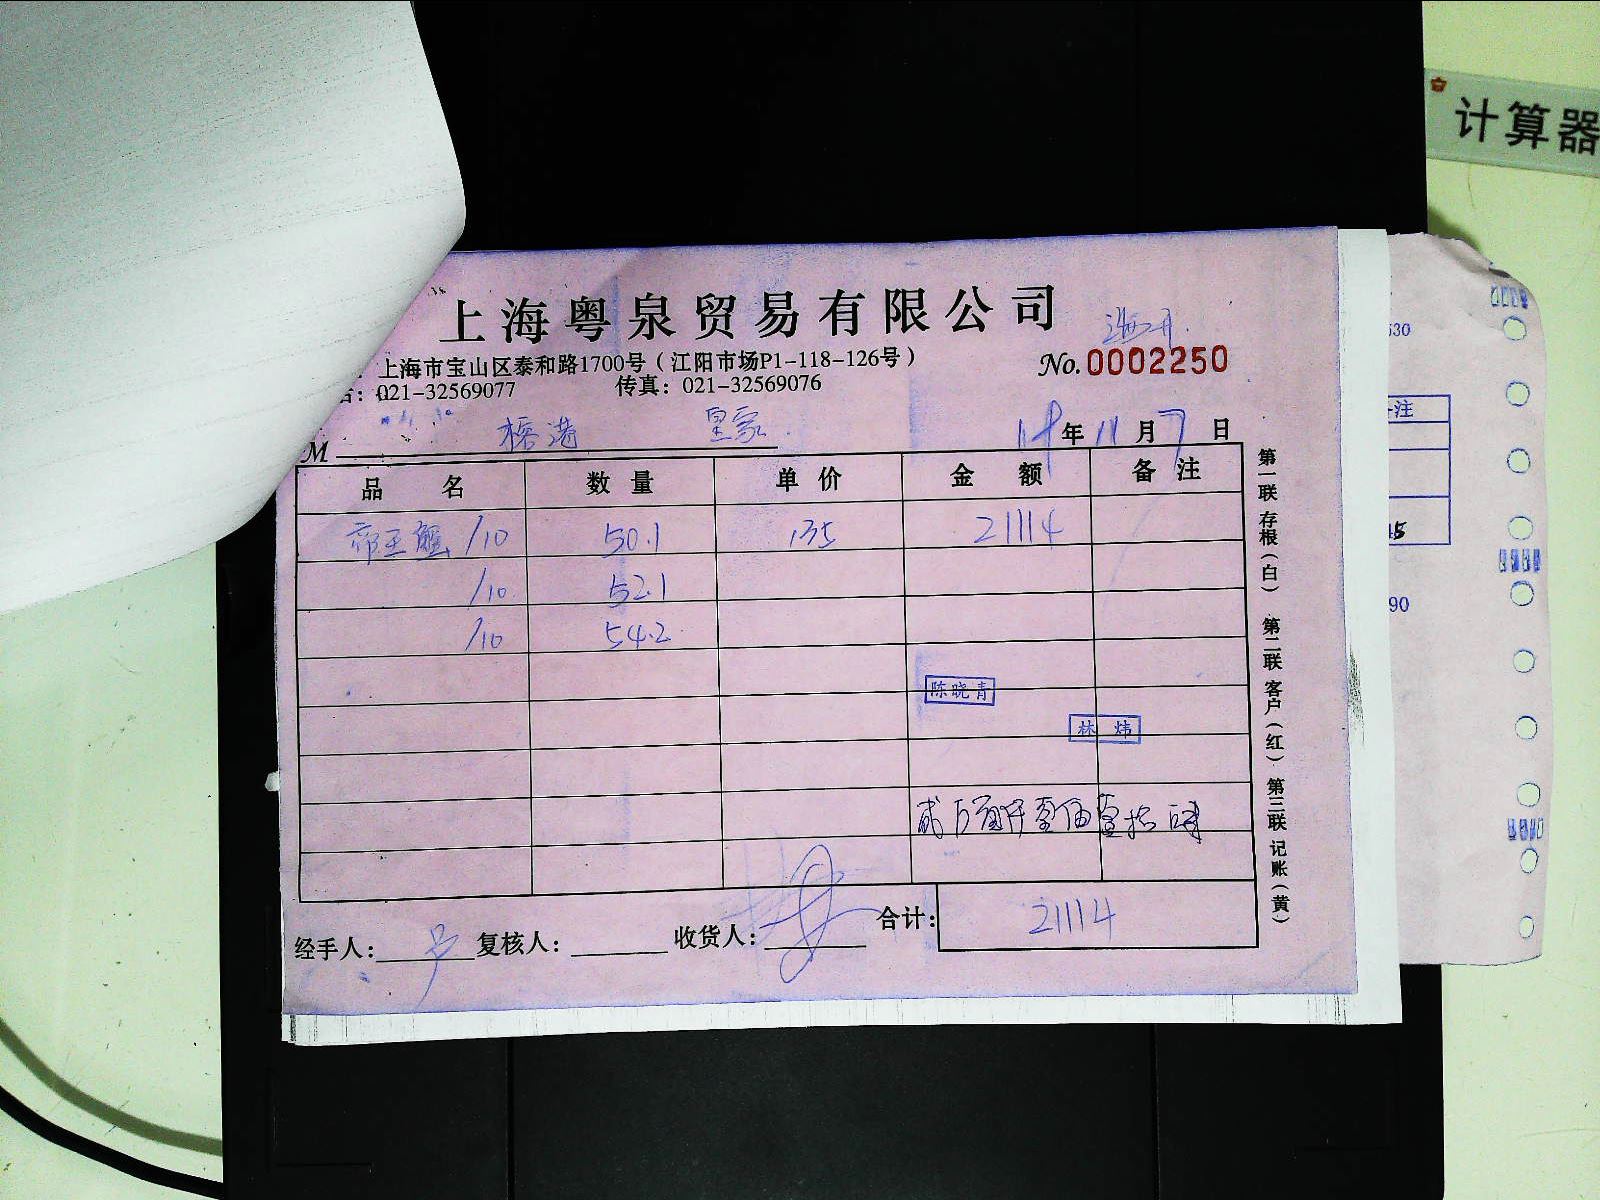 计算器
上海粤泉贸易有限公司
上海市宝山区泰和路1700号（江阳市场P1-118-126号）
No.0002250
021-32569077 传真：021-32569076
M 皇家 年 11 月 7 日
品名 数量 单价 金额 备注
帝王蟹 /10 50.1 135 21114
/10 52.1
/10 54.2
陈晓青
林炜
贰万壹仟壹佰壹拾肆
合计： 21114
经手人： 复核人： 收货人：
第一联 存根（白） 第二联 客户（红） 第三联 记账（黄）
530
注
90